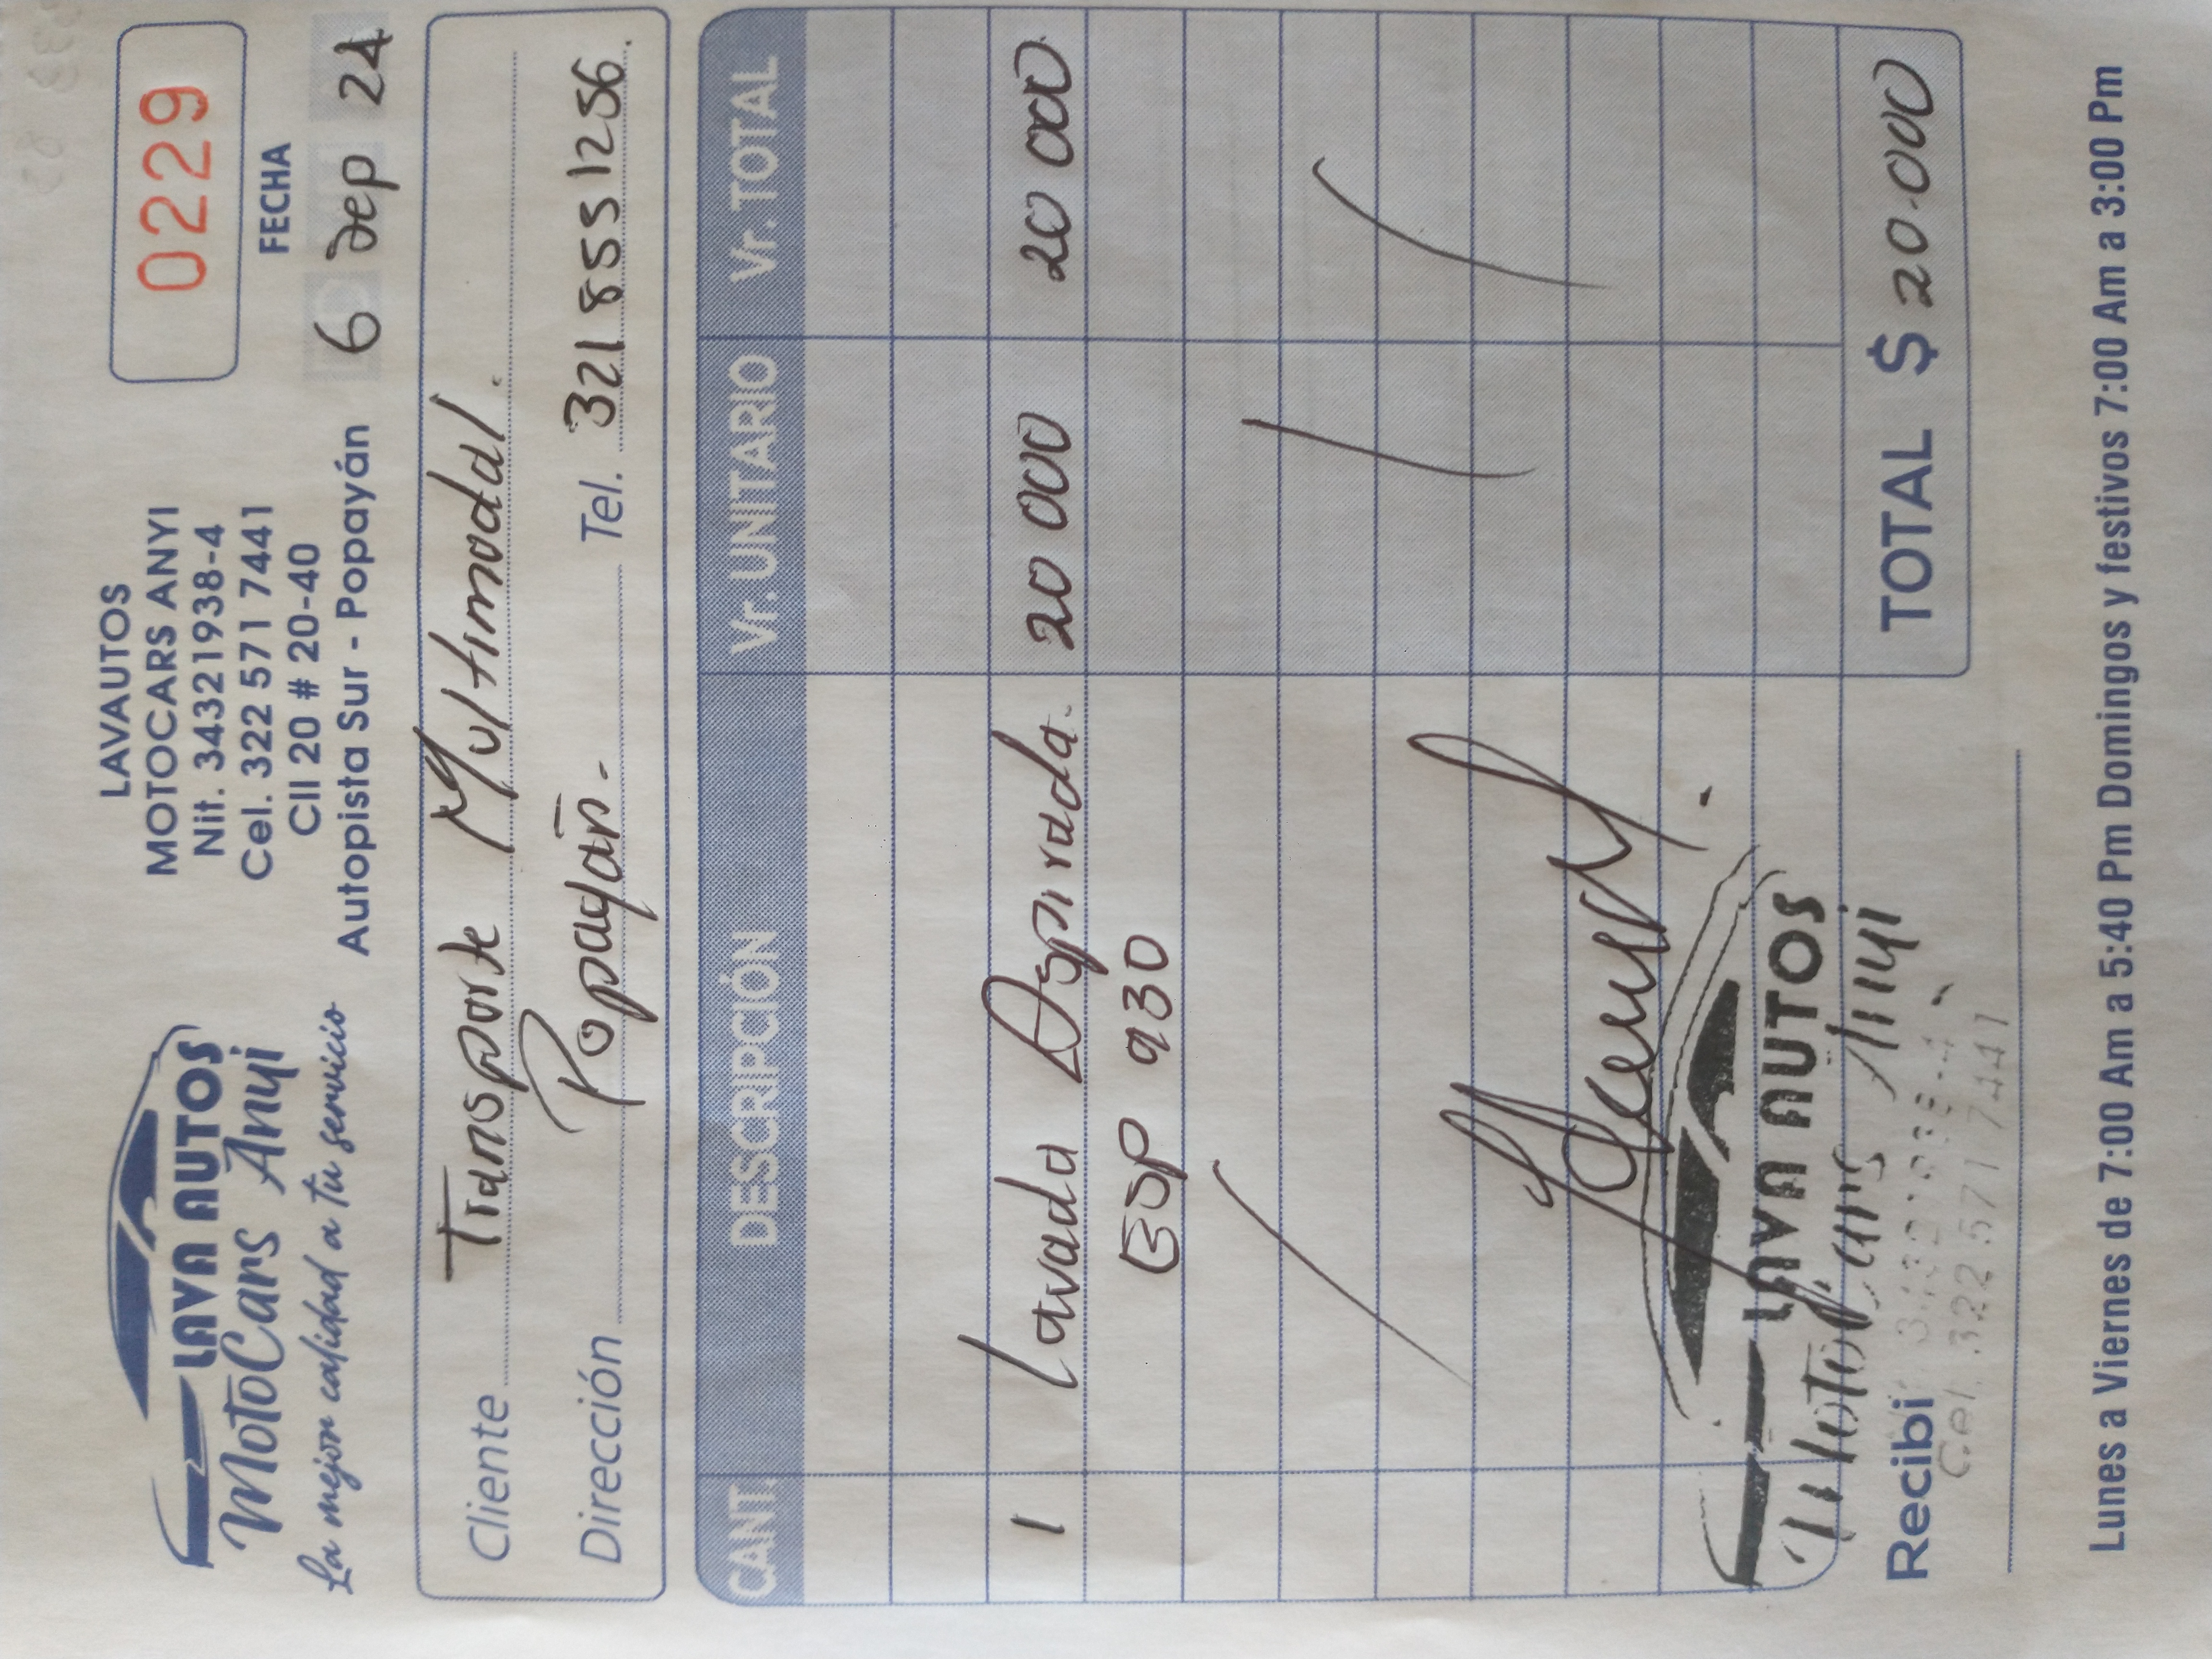 LAVA AUTOS
MotoCars Anyi
La mejor calidad a tu servicio
LAVAUTOS
MOTOCARS ANYI
Nit. 34321938-4
Cel. 322 571 7441
Cll 20 # 20-40
Autopista Sur - Popayán
0229
FECHA
6 Sep 24
Cliente Transporte Multimodal.
Dirección Popayán. Tel. 321 855 1256.
CANT. DESCRIPCIÓN Vr. UNITARIO Vr. TOTAL
1 Lavada Aspirada. 20 000 20 000
ESP 930
LAVA AUTOS
MotoCars Anyi
34321938-4
Cel. 322 571 7441
Recibí
TOTAL $ 20.000
Lunes a Viernes de 7:00 Am a 5:40 Pm Domingos y festivos 7:00 Am a 3:00 Pm